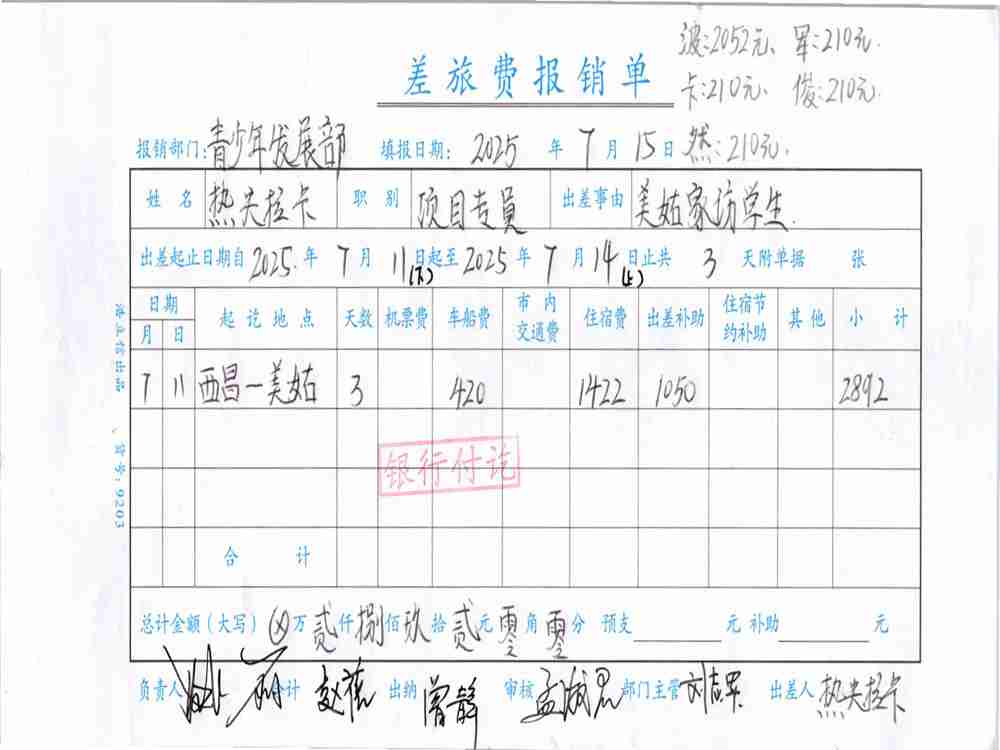 波:2052元、军:210元.
差旅费报销单
卡:210元、俊:210元.
报销部门:青少年发展部 填报日期: 2025 年 7 月 15 日 然:210元.
姓名 热夫拉卡 职别 项目专员 出差事由 美姑家访学生.
出差起止日期自 2025. 年 7 月 11 日起至 2025 年 7 月 14 日止共 3 天附单据 张
(下) (上)
日期 起讫地点 天数 机票费 车船费 市内交通费 住宿费 出差补助 住宿节约补助 其他 小计
月 日
7 11 西昌-美姑 3 420 1422 1050 2892
银行付讫
合计
总计金额(大写) ⊗万贰仟捌佰玖拾贰元零角零分 预支 元 补助 元
负责人 会计 出纳 曾静 审核 部门主管 出差人 热夫拉卡
货号:9203